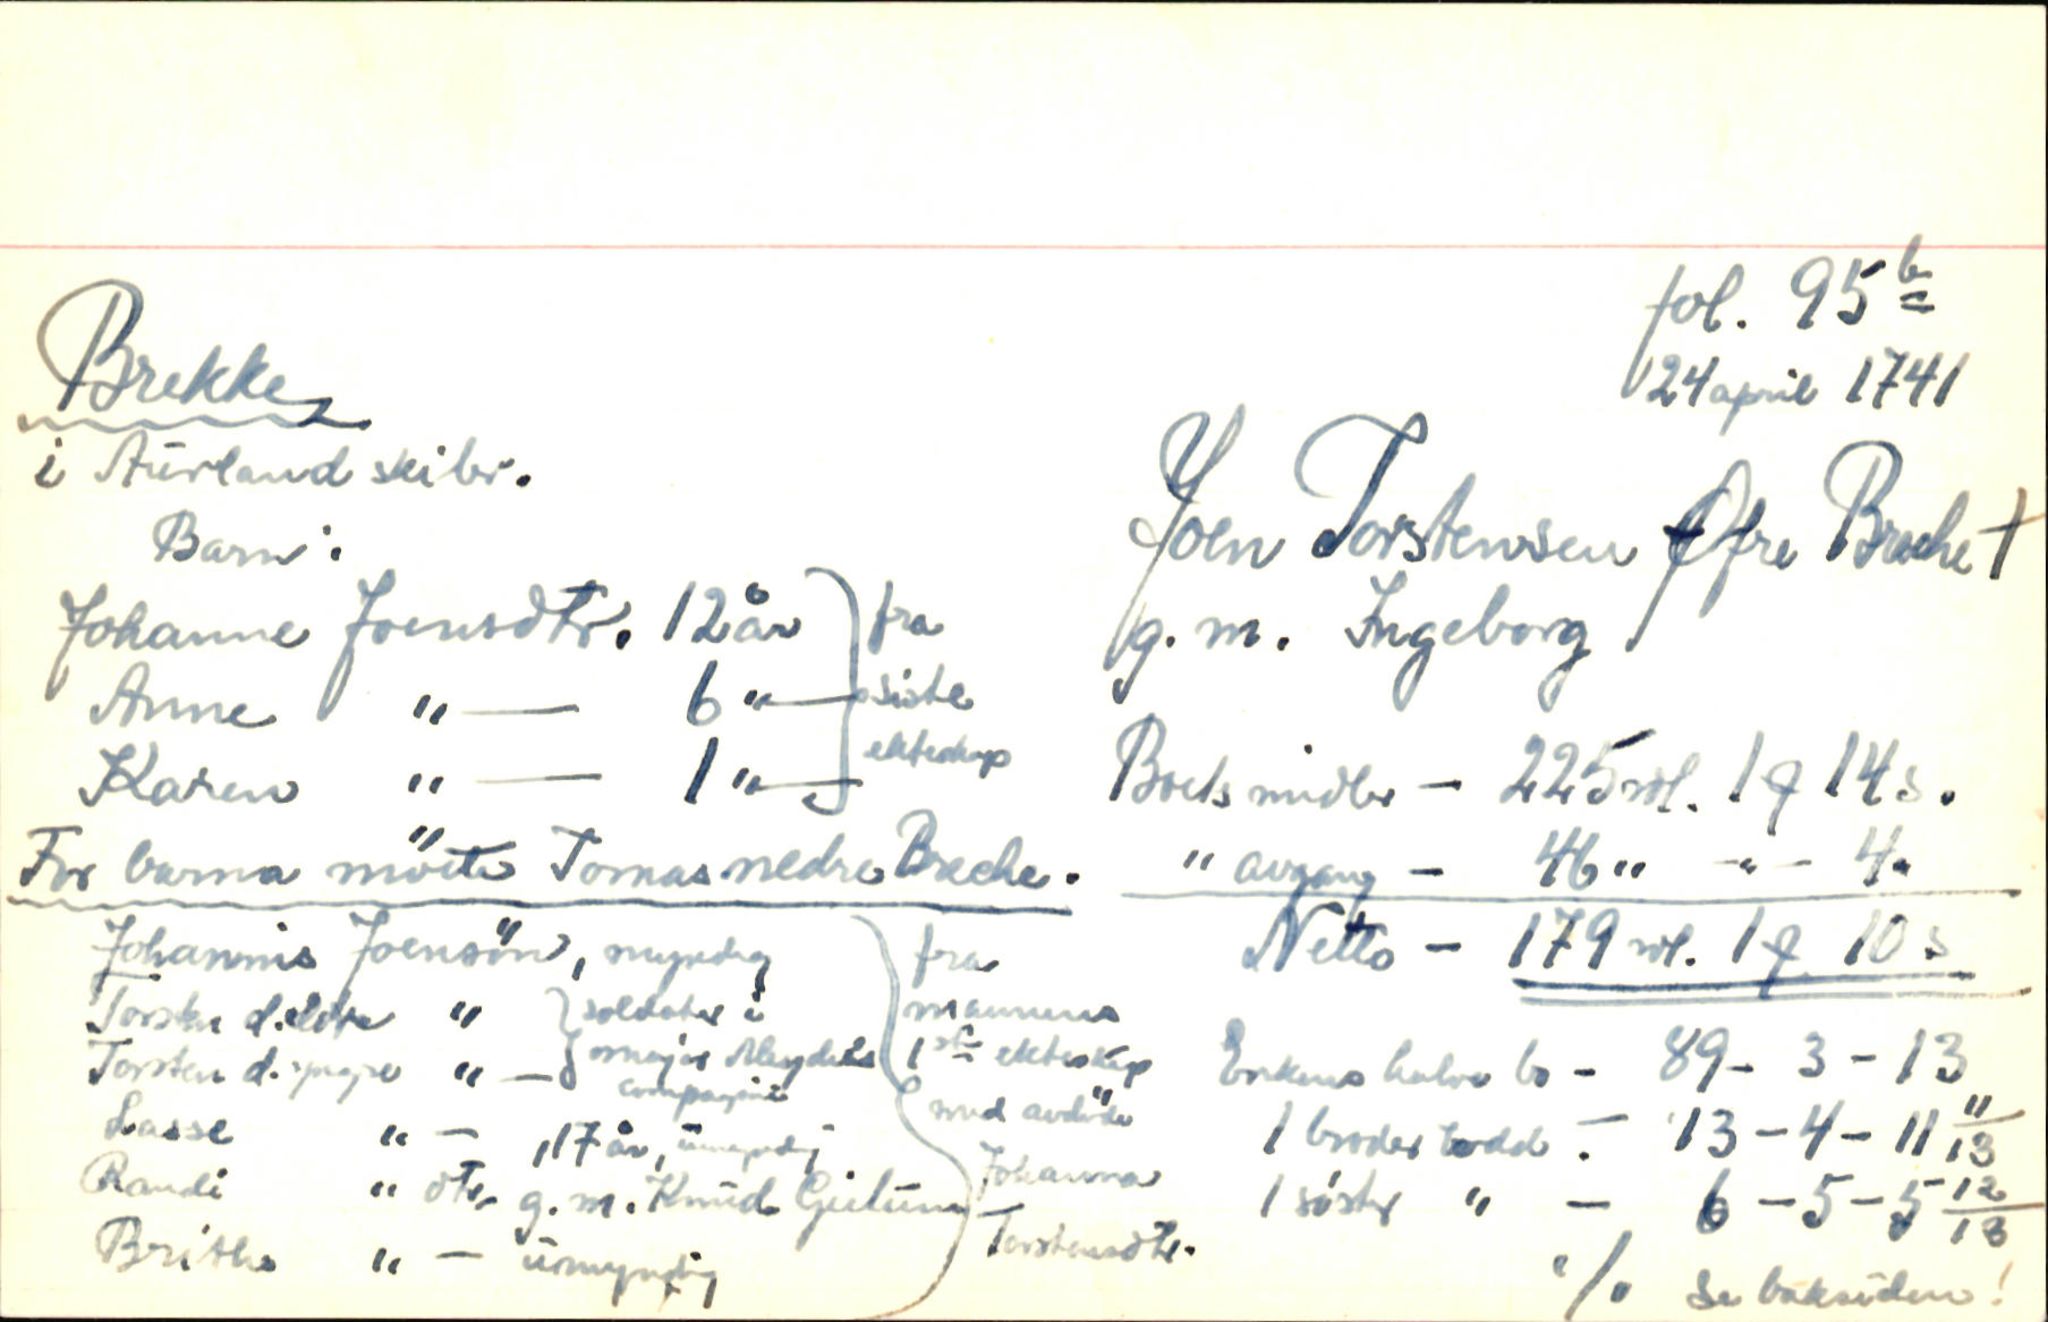 fol. 95 b
24 april 1741
Brekke
i Aurland skibr.
Joen Torstensen Øfre Breche †
g. m. Ingeborg
Barn:
Johanne Joensdtr. 12 år
Anne " — 6 " —
Karen " — 1 " —
fra
siste
ekteskap
For barna møtte Tomas nedre Breche.
Boets midler - 225 rdl. 1 ꝗ 14 s.
" avgang - 46 " - " - 4 "
Netto - 179 rdl. 1 ꝗ 10 s
Johannis Joensøn, myndig
Torsten d. eldre "
Torsten d. yngre " —
soldater i
major
compagnie
Lasse " — , 17 år, umyndig
Randi " dtr g. m. Knud
Brithe " — umyndig
fra
mannens
1ste ekteskap
med avdøde
Johanna
Torstensdtr.
Enkens halve bo - 89 - 3 - 13
1 broder lodd : - 13 - 4 - 11 11/13
1 søster " - 6 - 5 - 5 12/13
./. Se baksiden!